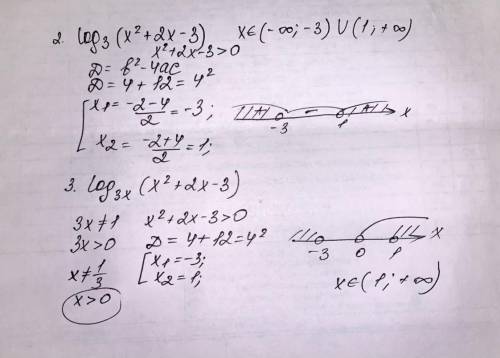 2. log₃(x²+2x-3) x∈(-∞;-3)∪(1;+∞)
x²+2x-3>0
D=b²-4ac
D=4+12=4²
[x₁=(-2-4)/2=-3;
x₂=(-2+4)/2=1;
+ - + 
-3 1 x
3. log₃ₓ(x²+2x-3)
3x≠1 x²+2x-3>0
3x>0 D=4+12=4²
x≠1/3 [x₁=-3;
x₂=1;
x>0
-3 0 1 x
x∈(1;+∞)